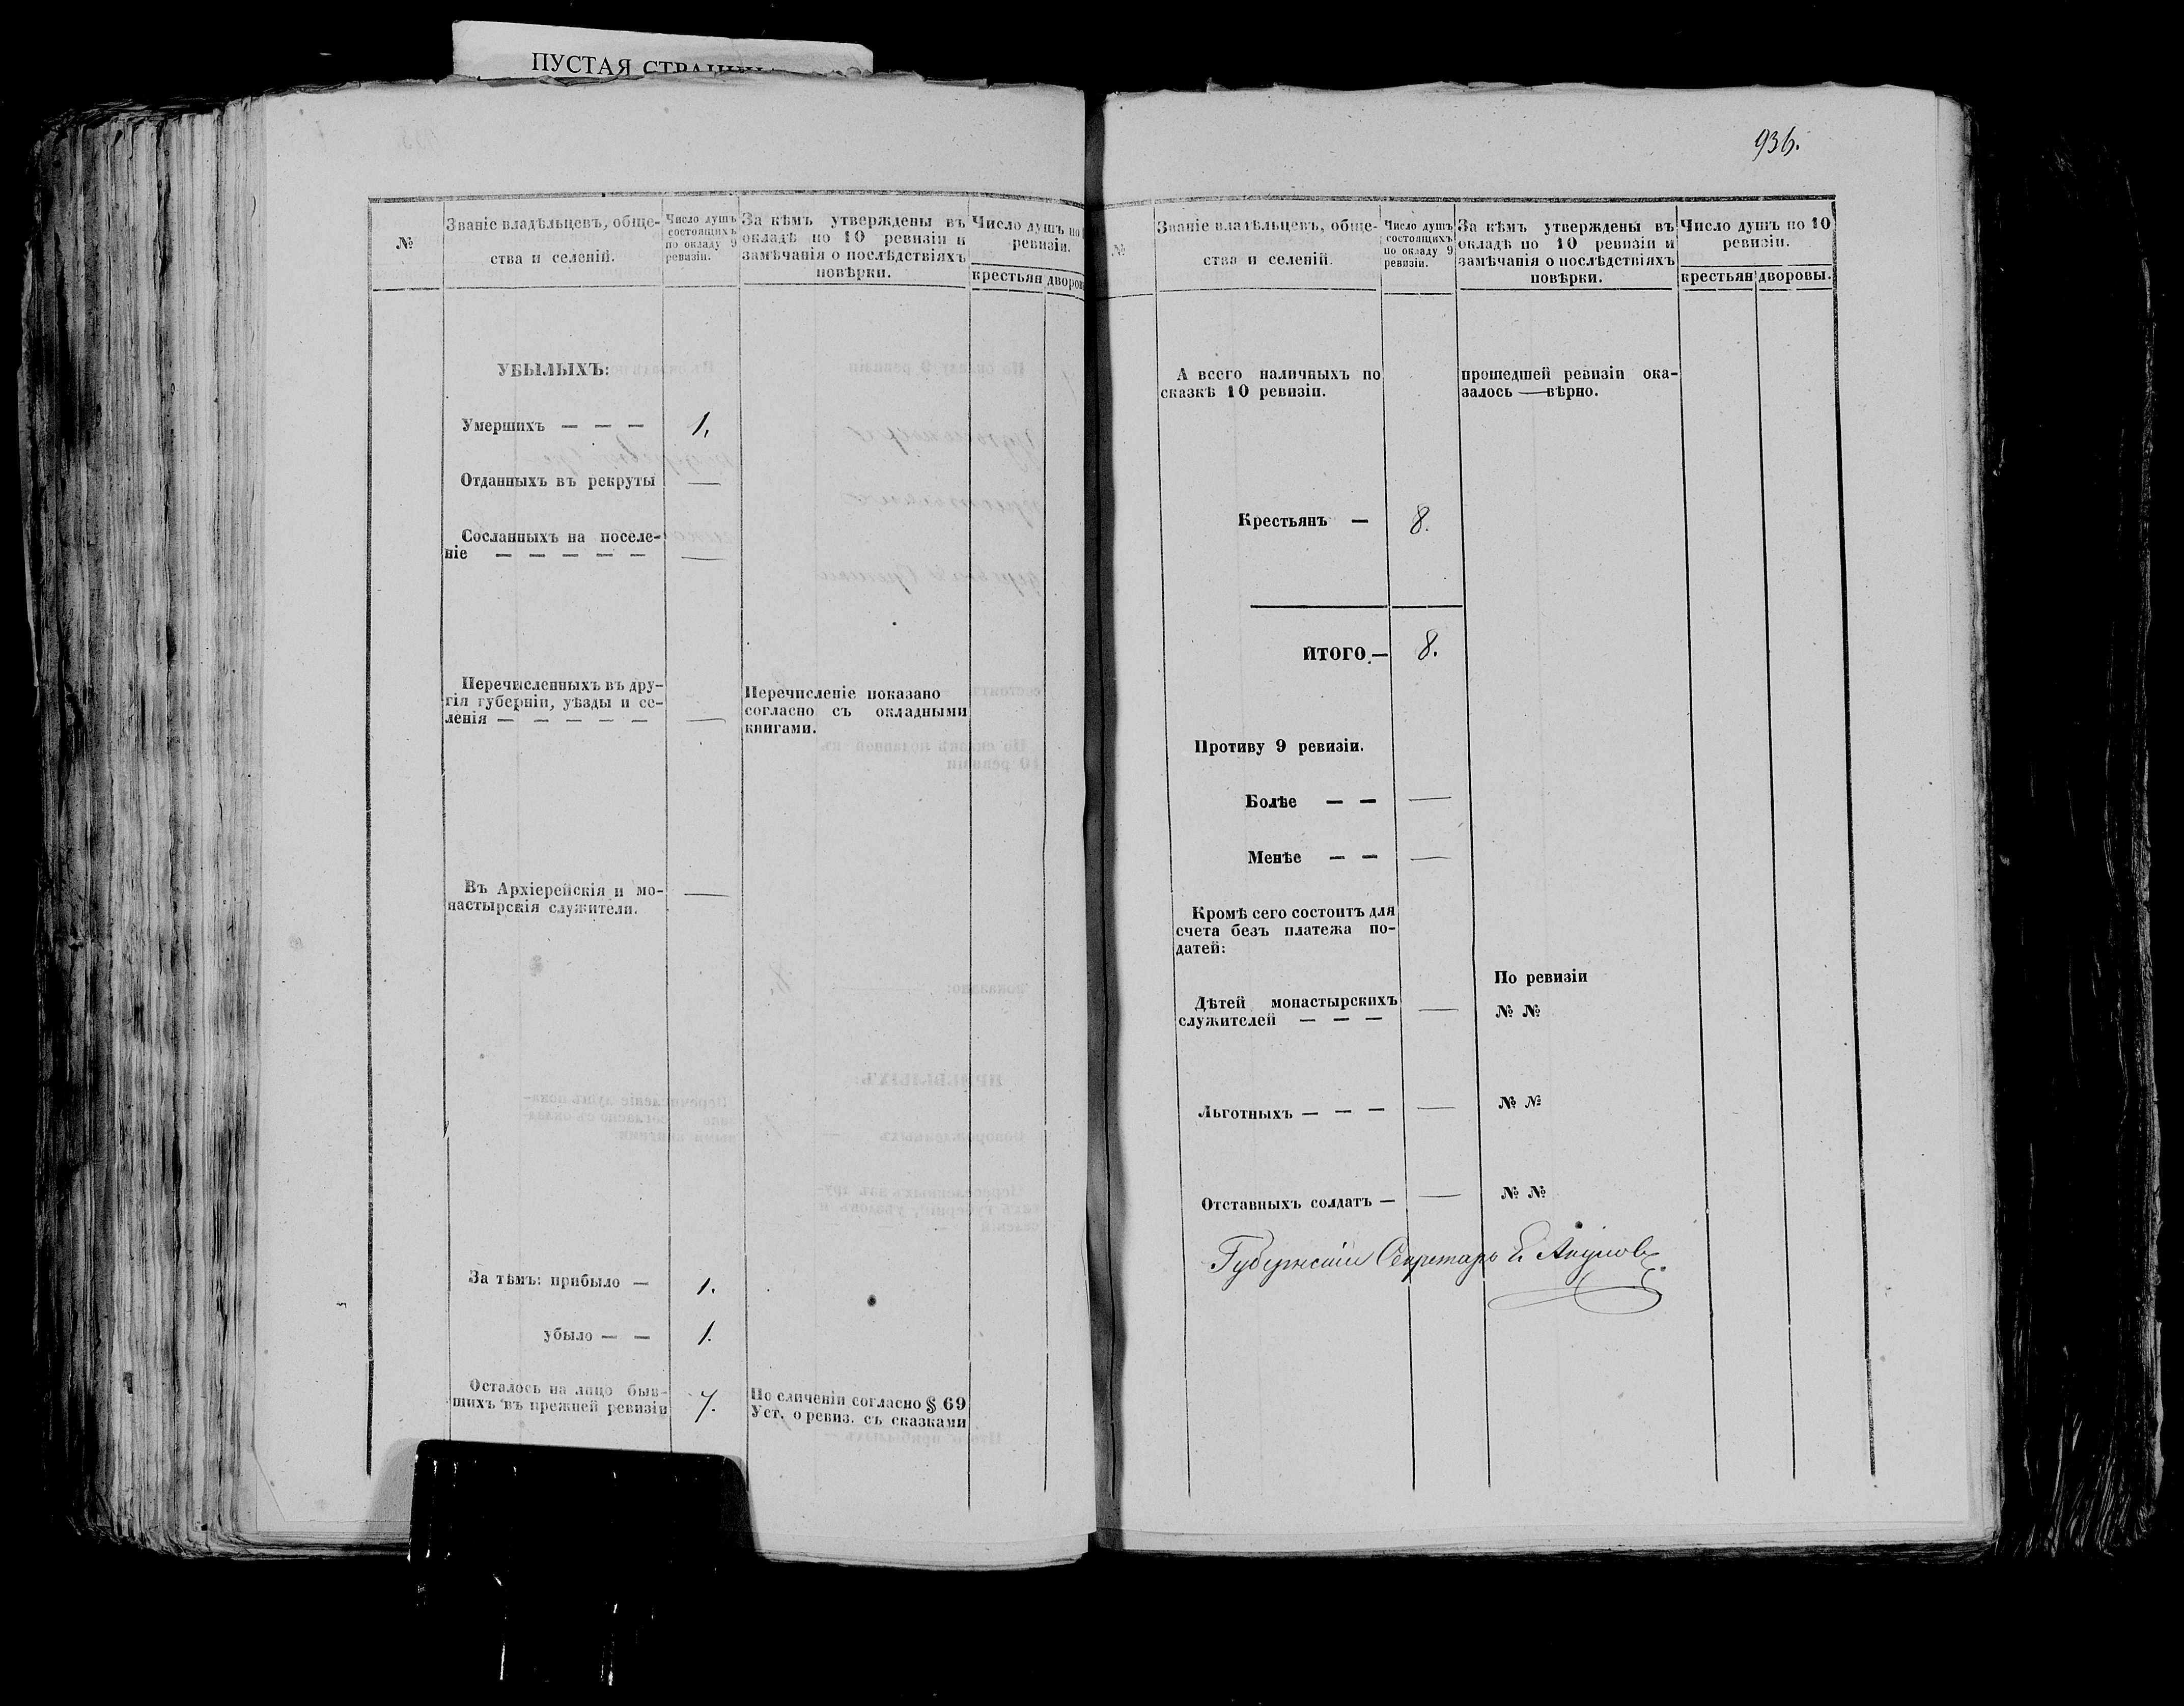 ПУСТАЯ
№
Званіе владѣльцевъ, обще-
ства и селеній.
Число душъ
состоящихъ
по окладу 9
ревизіи.
За кѣмъ утверждены въ
окладѣ по 10 ревизіи и
замѣчанія о послѣдствіяхъ
повѣрки.
Число душъ по
ревизіи.
крестьян
УБЫЛЫХЪ:
Умершихъ — — — 1.
Отданныхъ въ рекруты —
Сосланныхъ на поселе-
ніе — — — — — —
Перечисленныхъ въ дру-
гія губерніи, уѣзды и се-
ленія — — — — — —
Перечисленіе показано
согласно съ окладными
книгами.
Въ Архіерейскія и мо- —
настырскія служители.
За тѣмъ: прибыло — 1.
убыло — — 1.
Осталось на лицо быв-
шихъ въ прежней ревизіи 7.
По сличеніи согласно § 69
Уст. о ревиз. съ сказками
936.
№
Званіе владѣльцевъ, обще-
ства и селеній.
Число душъ
состоящихъ
по окладу 9
ревизіи.
За кѣмъ утверждены въ
окладѣ по 10 ревизіи и
замѣчанія о послѣдствіяхъ
повѣрки.
Число душъ по 10
ревизіи.
крестьян дворовы.
А всего наличныхъ по
сказкѣ 10 ревизіи.
прошедшей ревизіи ока-
залось — вѣрно.
Крестьянъ — 8.
ИТОГО.— 8.
Противу 9 ревизіи.
Болѣе — — —
Менѣе — — —
Кромѣ сего состоитъ для
счета безъ платежа по-
датей:
По ревизіи
Дѣтей монастырскихъ
служителей — — — —
№ №
Льготныхъ — — — — № №
Отставныхъ солдатъ — — № №
Губернскій Секретарь